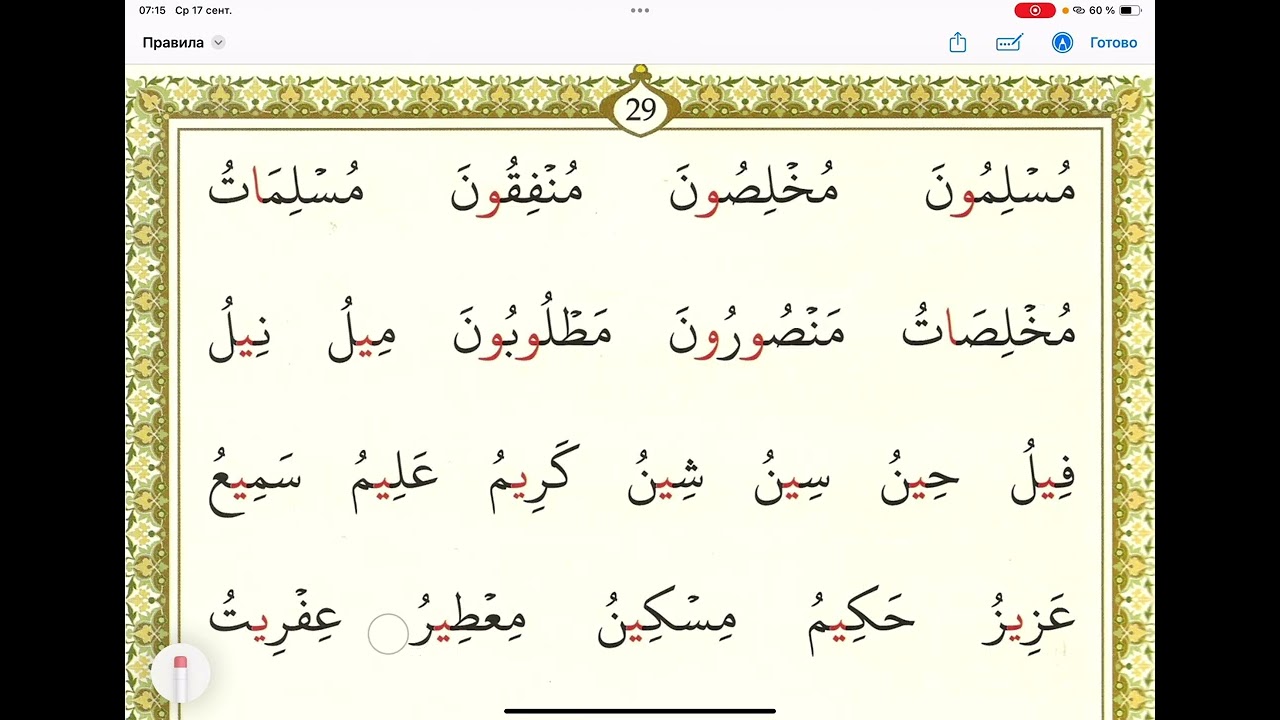 07:15 Ср 17 сент. 60 %
Правила Готово
29
مُسْلِمُونَ مُخْلِصُونَ مُنْفِقُونَ مُسْلِمَاتُ
مُخْلِصَاتُ مَنْصُورُونَ مَطْلُوبُونَ مِيلُ نِيلُ
فِيلُ حِينُ سِينُ شِينُ كَرِيمُ عَلِيمُ سَمِيعُ
عَزِيزُ حَكِيمُ مِسْكِينُ مِعْطِيرُ عِفْرِيتُ